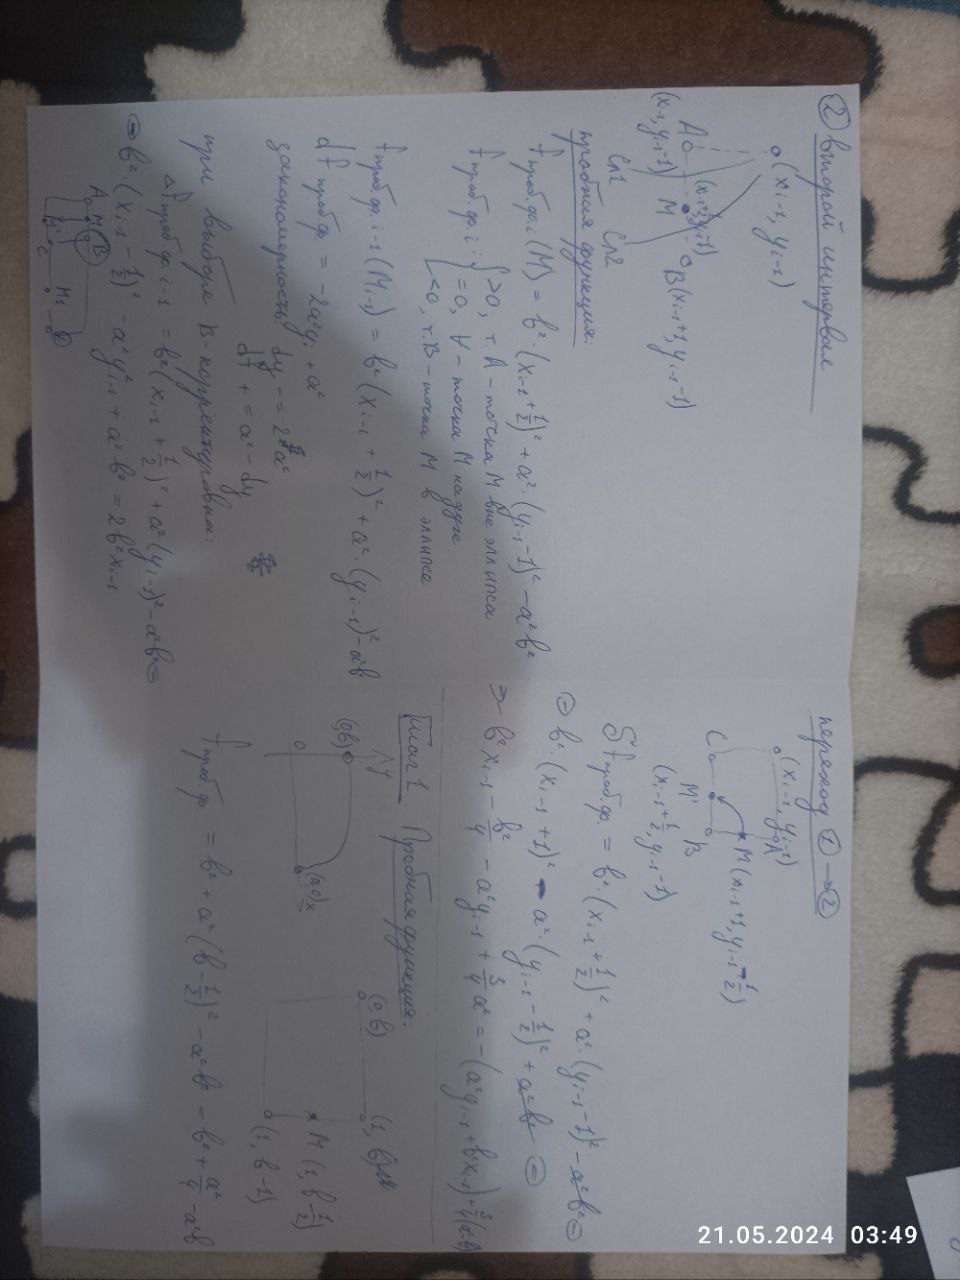 ② второй интервал
(xᵢ₋₁, yᵢ₋₁)
A
M
B(xᵢ₋₁+1, yᵢ₋₁-1)
сл1 сл2
пробная функция:
f проб.ф.ᵢ (M) = b²·(xᵢ₋₁ + 1/2)² + a²·(yᵢ₋₁ - 1)² - a²b²
f проб.ф.ᵢ: { >0, т. A - точка M вне эллипса
=0, ∀ - точка M на дуге
<0, т. B - точка M в эллипсе
f проб.ф.ᵢ₋₁ (Mᵢ₋₁) = b²(xᵢ₋₁ + 1/2)² + a²·(yᵢ - 1)² - a²b²
df проб.ф. = -2a²yᵢ + a²
закономерность dy -= 2a²
df += a² - dy
при выборе B - корректировки:
Δf проб.ф.ᵢ₋₁ = b²(xᵢ₋₁ + 1/2)² + a²(yᵢ - 1)² - a²b² =
= b²·(xᵢ₋₁ - 1/2)² - a²y²ᵢ₋₁ + a²b² = 2b²xᵢ₋₁
A M B
C
M₁
переход ① → ②
(xᵢ₋₁, yᵢ₋₁)
A
M(xᵢ₋₁+1, yᵢ₋₁-1/2)
C
M'
B
(xᵢ₋₁+1/2, yᵢ₋₁-1)
δf проб.ф. = b²·(xᵢ₋₁ + 1/2)² + a²·(yᵢ₋₁ - 1)² - a²b² -
- b²·(xᵢ₋₁ + 1)² - a²·(yᵢ₋₁ - 1/2)² + a²b² =
= -b²xᵢ₋₁ - b²/4 - a²yᵢ₋₁ + 3/4 a² = -(a²yᵢ₋₁ + b²xᵢ₋₁) + 3/4
Шаг 1 Пробная функция:
y
(0,b)
0
(a,0) x
(0,b)
(1, b)
M(1, b-1/2)
(1, b-1)
f проб.ф. = b² + a²(b - 1/2)² - a²b² = b² + a²/4 - a²b
21.05.2024 03:49